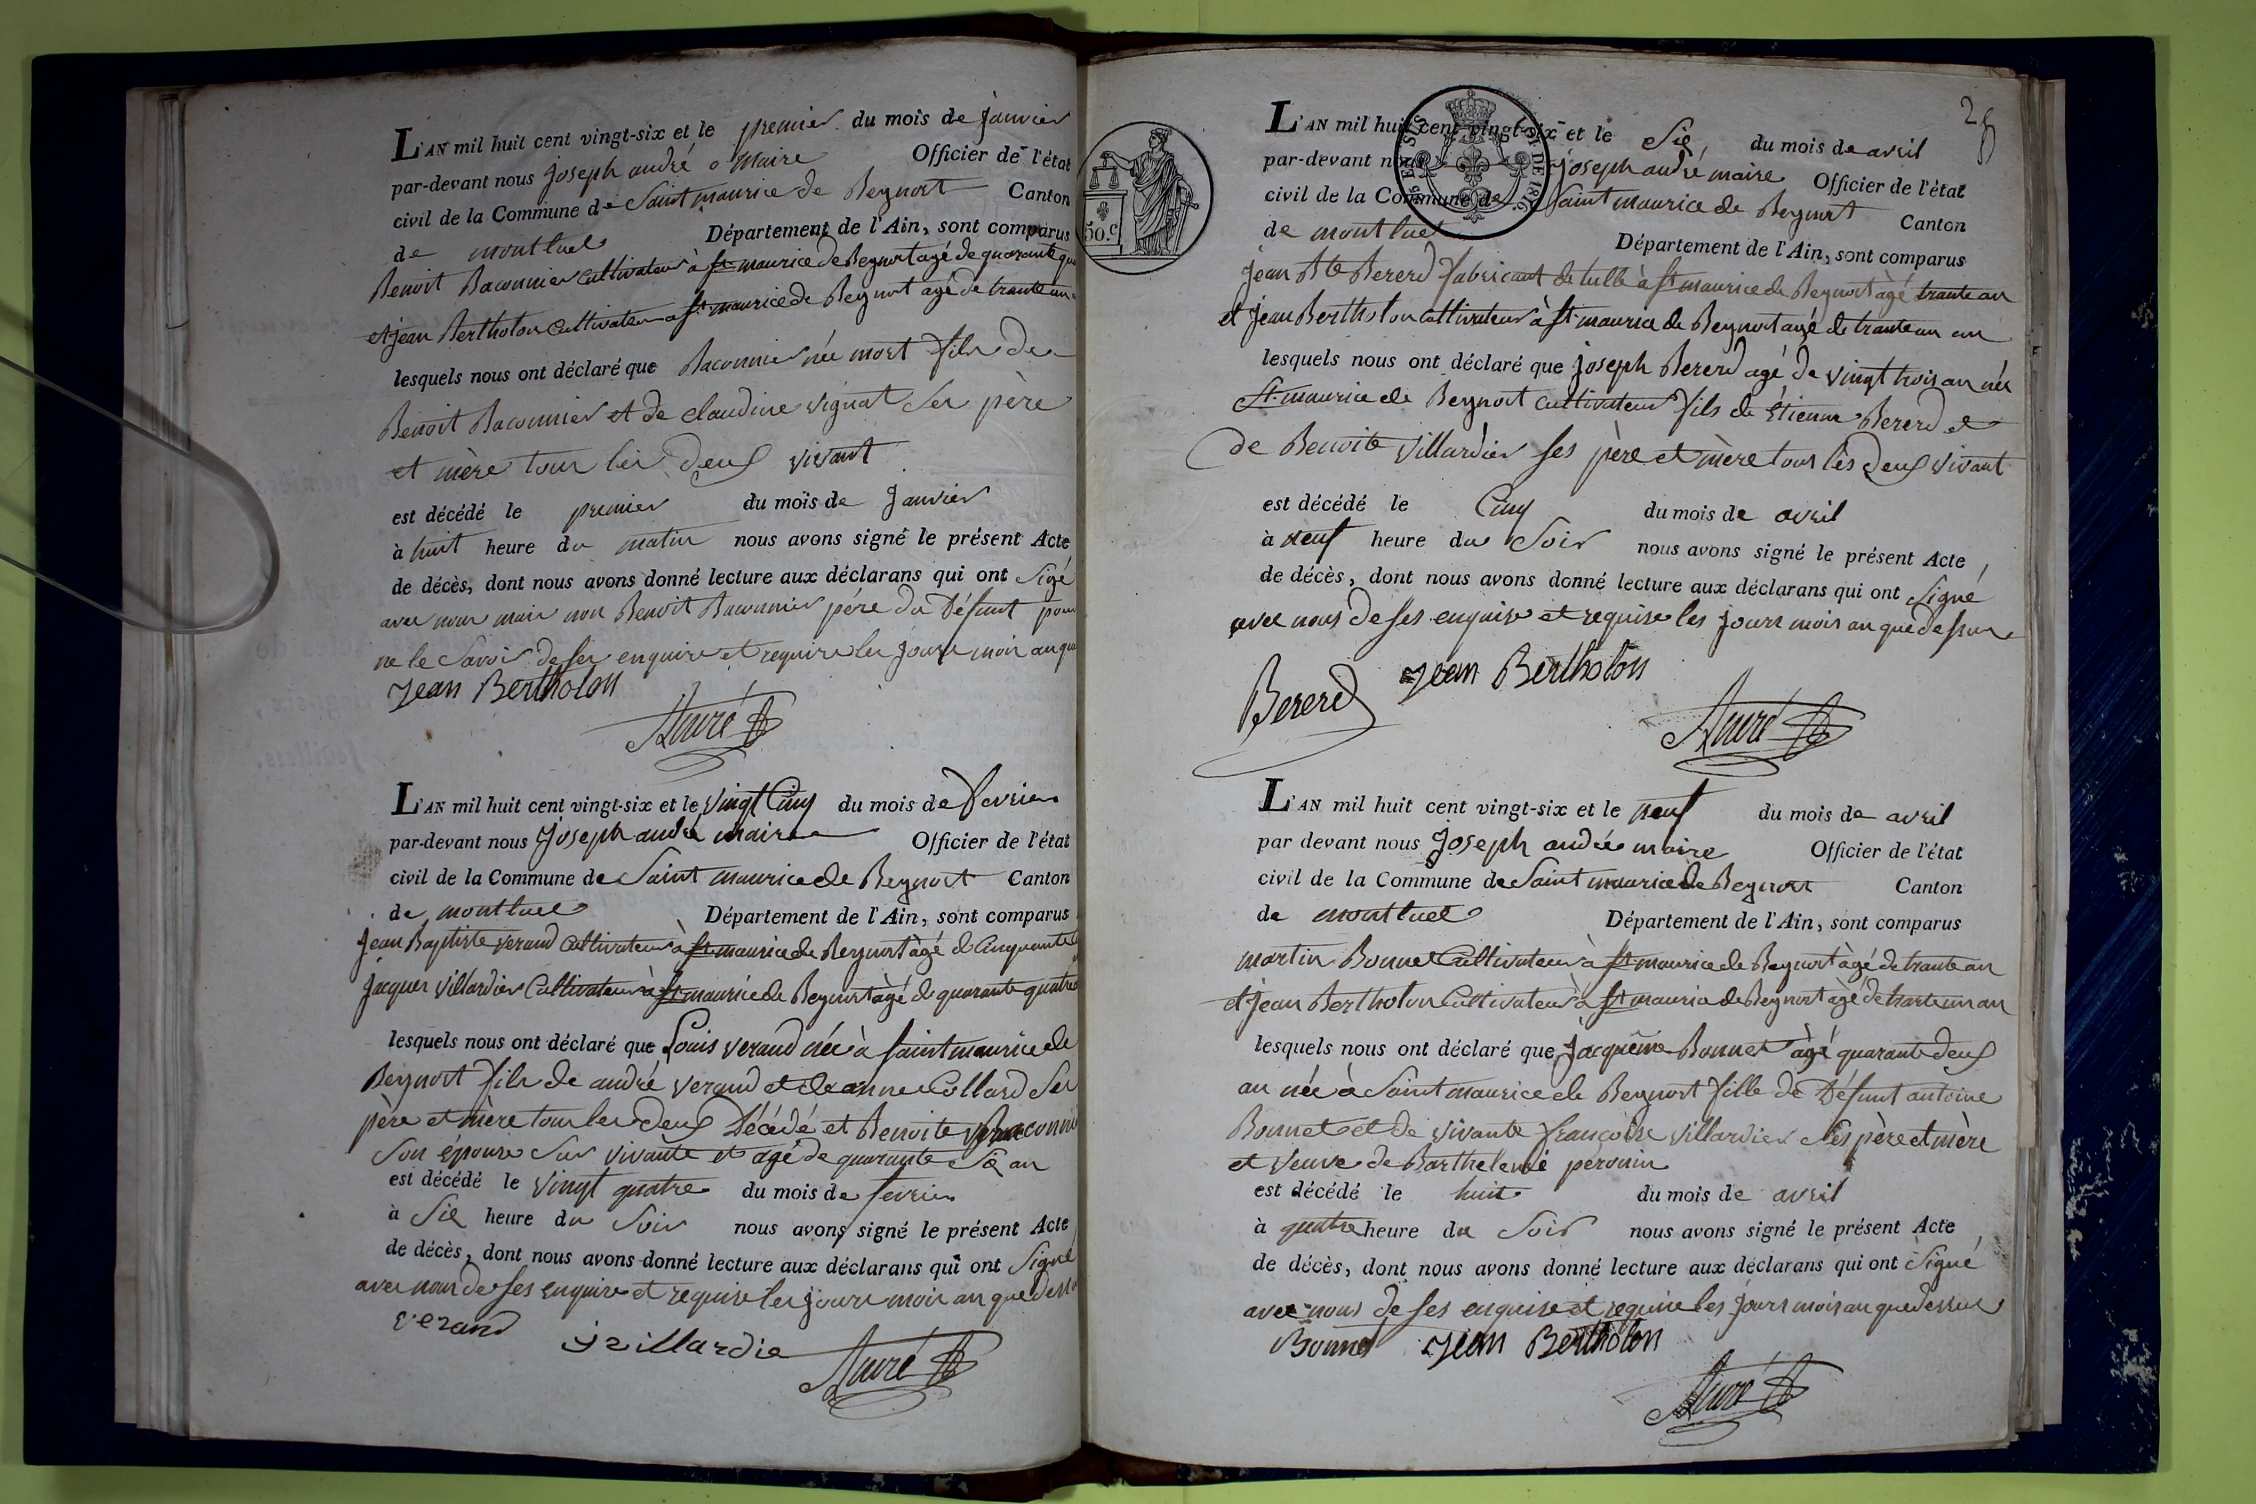 L'AN mil huit cent vingt-six et le premier du mois de janvier
par-devant nous joseph andré Maire Officier de l'état
civil de la Commune de Saint maurice de Beynost Canton
de montluel Département de l'Ain, sont comparus
Benoit Baconnier cultivateur à st maurice de Beynost agé de quarante
et jean Bertholon Cultivateur a st maurice de Beynost agé de trante un
lesquels nous ont déclaré que Baconnier née mort fils de
Benoit Baconnier et de claudine vignat Ses père
et mère tous les deux vivant
est décédé le premier du mois de Janvier
à huit heure du matin nous avons signé le présent Acte
de décès, dont nous avons donné lecture aux déclarans qui ont Signé
avec nous mais non Benoit Baconnier père du Défunt pour
ne le Savoir de ses enquire et require les jours mois an que
Jean Bertholon
André
L'AN mil huit cent vingt-six et le vingt Cinq du mois de fevrier
par-devant nous Joseph andré maire Officier de l'état
civil de la Commune de Saint maurice de Beynost Canton
de montluel Département de l'Ain, sont comparus
Jean Baptiste verand Cultivateur à st maurice de Beynost âgé de Cinquante
Jacques villardier Cultivateur à st maurice de Beynost âgé de quarante quatre
lesquels nous ont déclaré que Louis verand née à saint maurice de
Beynost fils de andré verand et de anne Collard Ses
père et mère tous les deux Décédé et Benoite Baconnié
Son épouse Sur vivante et agé de quarante Six an
est décédé le vingt quatre du mois de fevrier
à Six heure du Soir nous avons signé le présent Acte
de décès, dont nous avons donné lecture aux déclarans qui ont Signé
avec nous de ses enquire et requise les jours mois an que dessus
verand
j villardie
André
28
50.c
DE 1816
L'AN mil huit cent vingt-six et le Six du mois de avril
par-devant nous Joseph andré maire Officier de l'état
civil de la Commune de Saint maurice de Beynost Canton
de montluel Département de l'Ain, sont comparus
Jean Bte Bererd fabricant de tulle à st maurice de Beynost âgé trante an
et Jean Bertholon Cultivateur à st maurice de Beynost agé de trante un an
lesquels nous ont déclaré que joseph Bererd agé de vingt trois an née
St. maurice de Beynost Cultivateur fils de Étienne Bererd et
de Benoite villardier ses père et mère tous les deux vivant
est décédé le Cinq du mois de avril
à neuf heure du Soir nous avons signé le présent Acte
de décès, dont nous avons donné lecture aux déclarans qui ont Signé
avec nous de ses enquise et requise les jours mois an que dessus
Bererd
Jean Bertholon
André
L'AN mil huit cent vingt-six et le neuf du mois de avril
par devant nous Joseph andré maire Officier de l'état
civil de la Commune de Saint maurice de Beynost Canton
de montluel Département de l'Ain, sont comparus
martin Bonnet Cultivateur à st maurice de Beynost âgé de trante an
et Jean Bertholon Cultivateur à st maurice de Beynost âgé de trante un an
lesquels nous ont déclaré que Jacquême Bonnet âgé quarante deux
an née à Saint maurice de Beynost fille de Défunt antoine
Bonnet et de vivante françoise villardier Ses père et mère
et veuve de Barthelemé peronin
est décédé le huit du mois de avril
à quatre heure du Soir nous avons signé le présent Acte
de décès, dont nous avons donné lecture aux déclarans qui ont Signé
avec nous de ses enquise et requise les jours mois an que dessus
Bonnet
Jean Bertholon
André